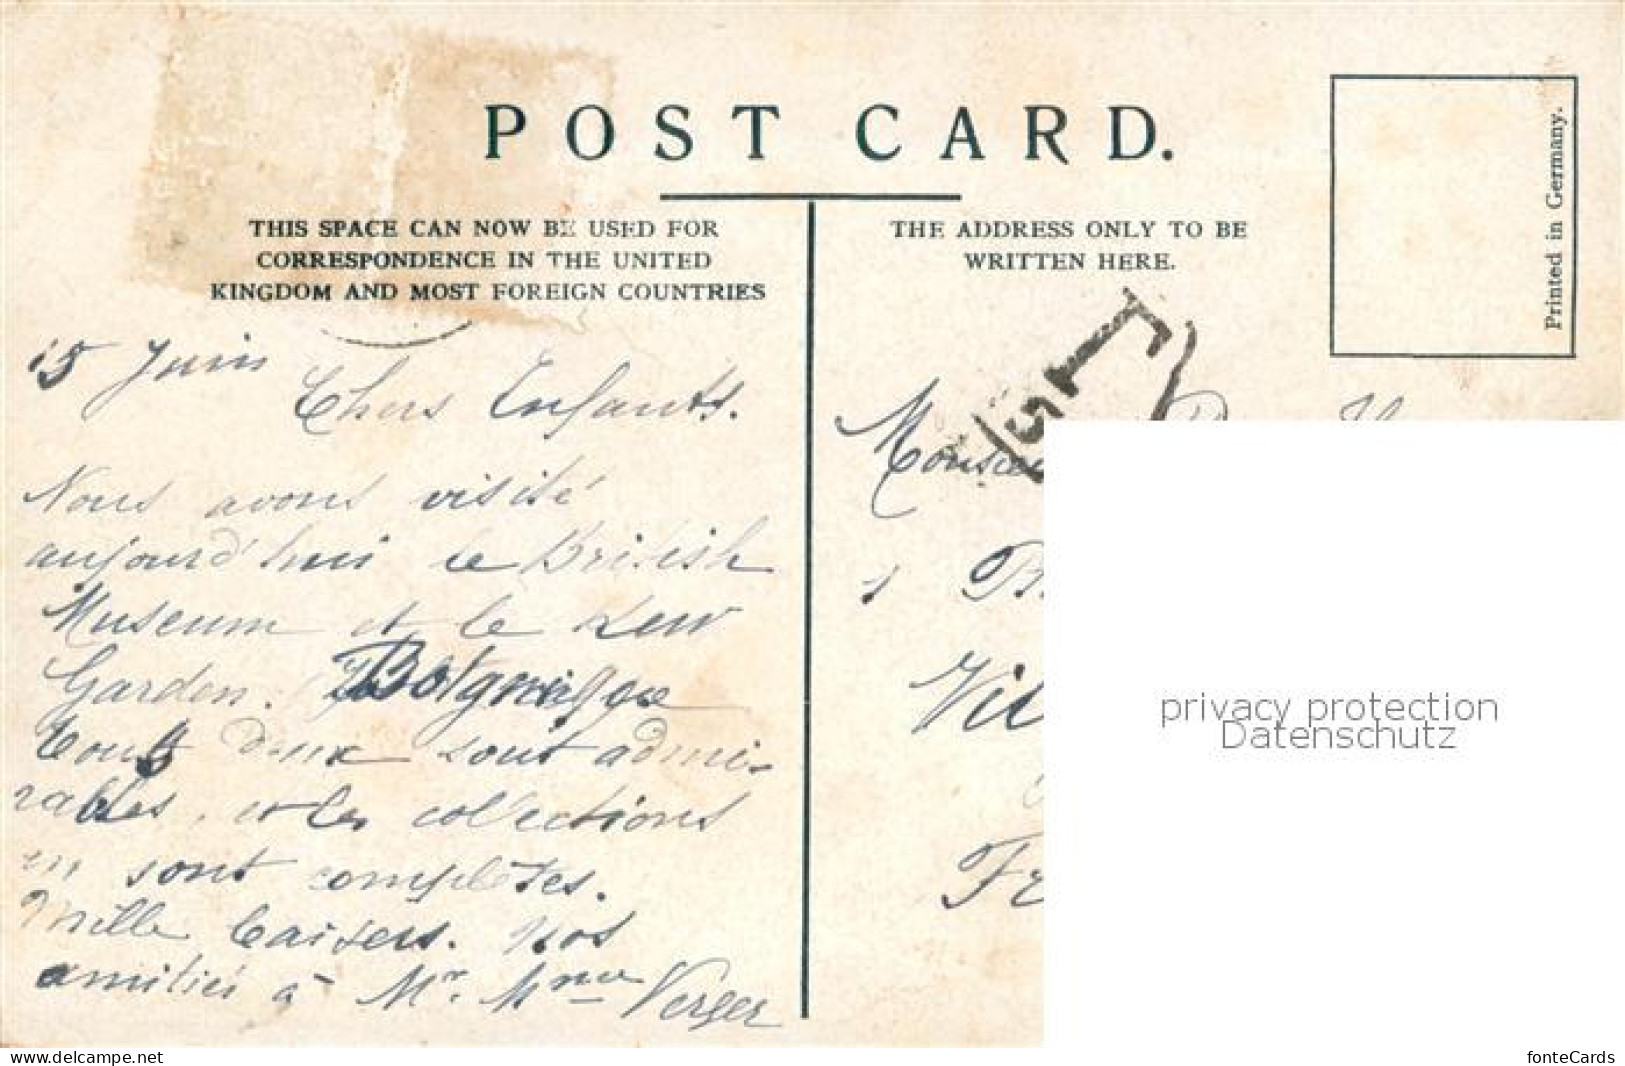 POST CARD.
THIS SPACE CAN NOW BE USED FOR
CORRESPONDENCE IN THE UNITED
KINGDOM AND MOST FOREIGN COUNTRIES
THE ADDRESS ONLY TO BE
WRITTEN HERE.
Printed in Germany.
15 Juin
Chers Enfants.
Nous avons visité
aujourd'hui le British
Museum et le Kew
Garden.
Tous deux sont admi-
rables, et les collections
en sont complètes.
Mille baisers. Nos
amitiés à Mr. Mme Verger
T
5
privacy protection
Datenschutz
www.delcampe.net
fonteCards